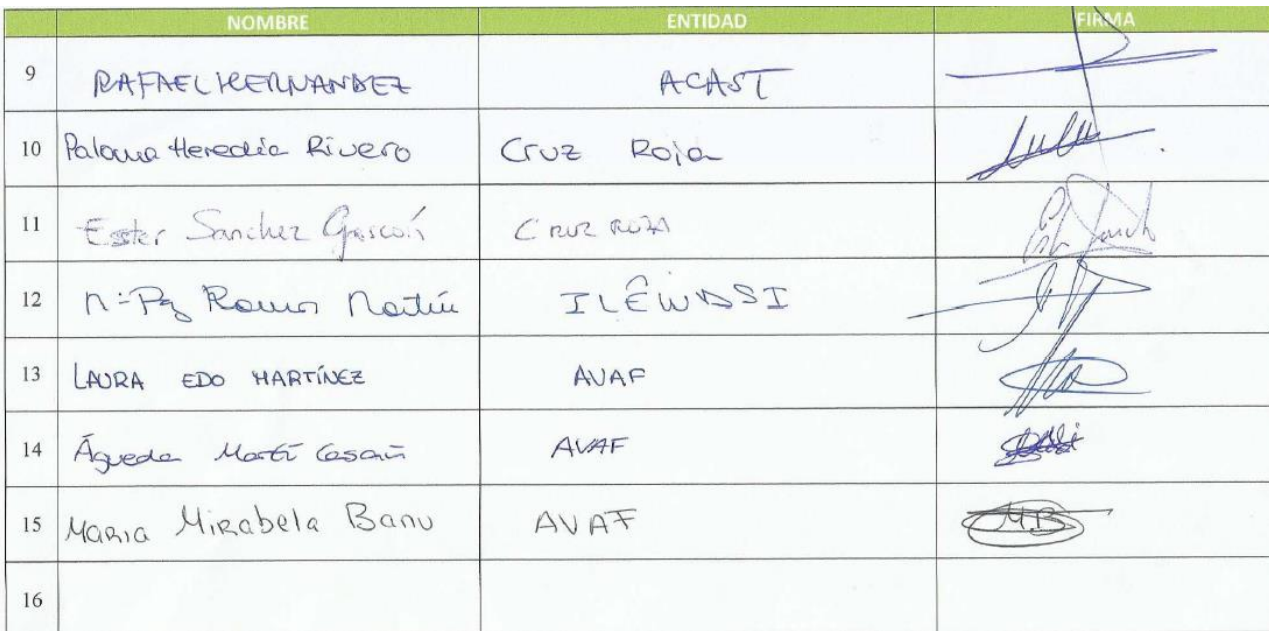 NOMBRE ENTIDAD FIRMA
9 RAFAEL HERNANDEZ ACAST
10 Paloma Heredia Rivero Cruz Roja
11 Ester Sanchez Gascón CRUZ ROJA
12 Mª Paz Ramos Martín ILÊWASI
13 LAURA EDO MARTÍNEZ AVAF
14 Águeda Martí Casañ AVAF
15 Maria Mirabela Banu AVAF M.B
16